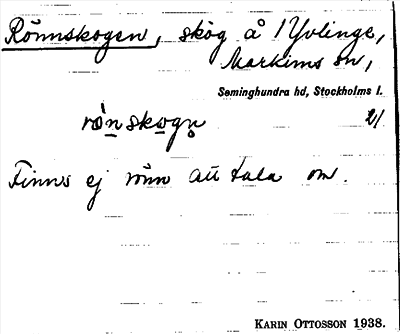 Rönnskogen, skog å Yvlinge,
Markims sn,
Seminghundra hd, Stockholms l.
rö̀nskogn̥ 2/
Finns ej rönn att tala om.
KARIN OTTOSSON 1938.